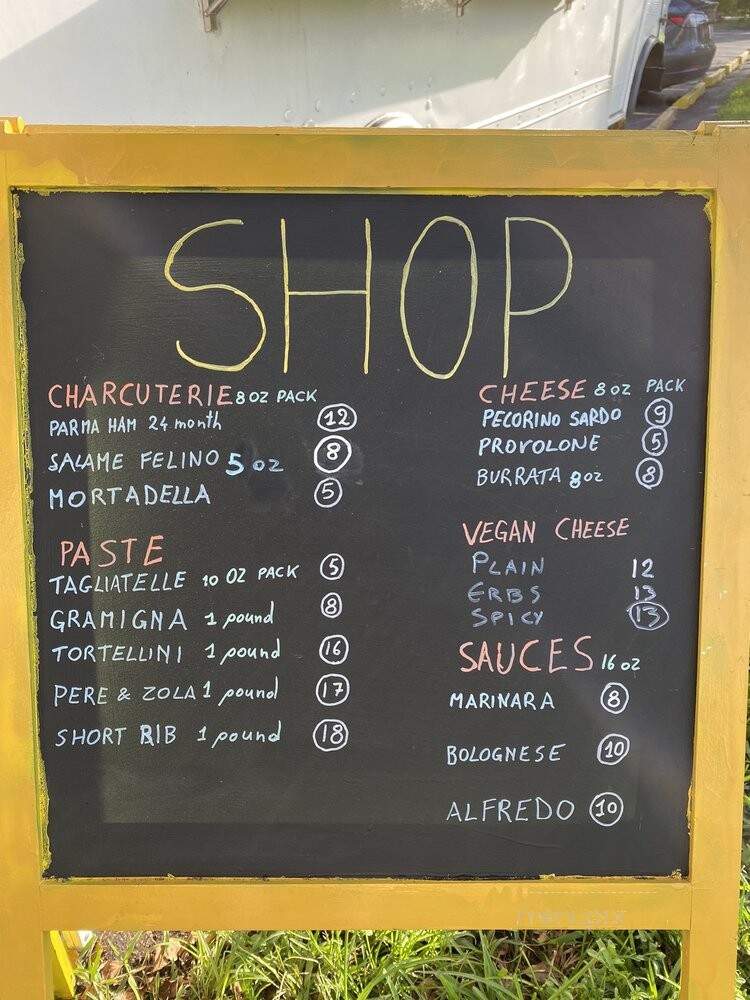 SHOP
CHARCUTERIE 8 OZ PACK
PARMA HAM 24 month 12
SALAME FELINO 5 oz 8
MORTADELLA 5
PASTE
TAGLIATELLE 10 OZ PACK 5
GRAMIGNA 1 pound 8
TORTELLINI 1 pound 16
PERE & ZOLA 1 pound 17
SHORT RIB 1 pound 18
CHEESE 8 OZ PACK
PECORINO SARDO 9
PROVOLONE 5
BURRATA 8oz 8
VEGAN CHEESE
PLAIN 12
ERBS 13
SPICY 13
SAUCES 16 oz
MARINARA 8
BOLOGNESE 10
ALFREDO 10